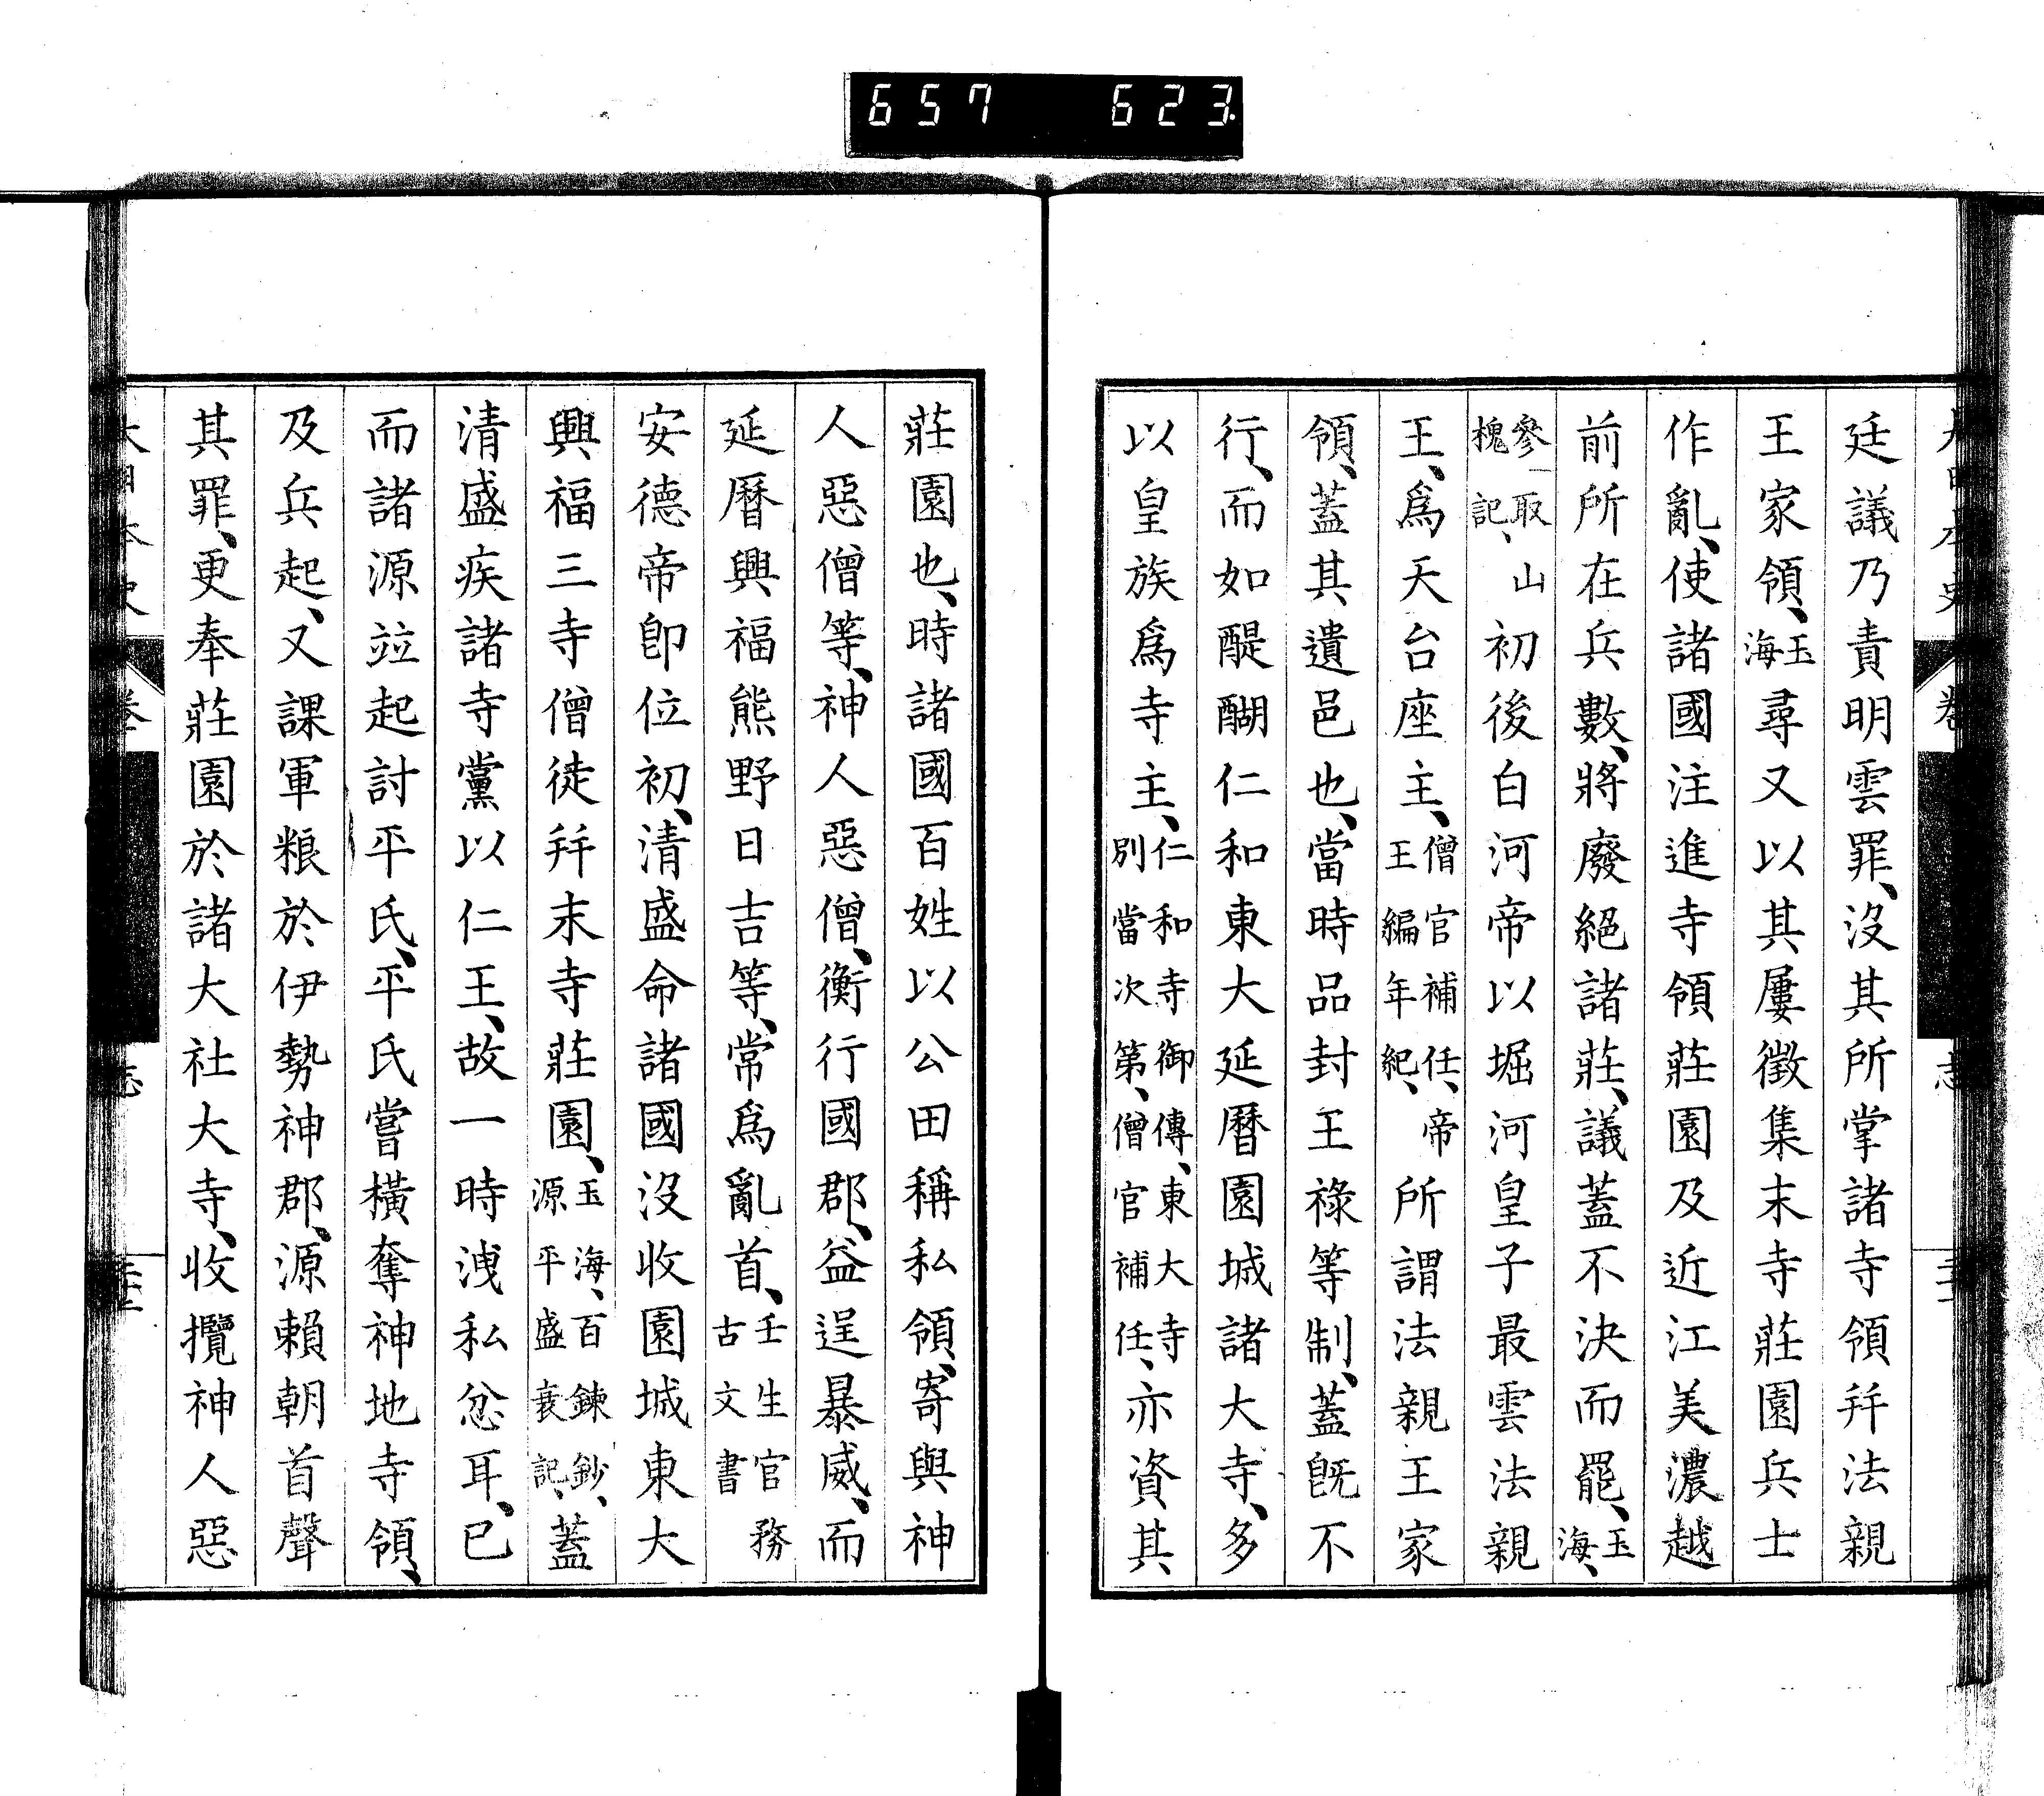 657 623
廷議乃責明雲罪、沒其所掌諸寺領幷法親
王家領、玉海尋又以其屢徵集末寺莊園兵士
作亂、使諸國注進寺領莊園及近江美濃越
前所在兵數、將廢絕諸莊、議蓋不決而罷、玉海、
參取山槐記、初後白河帝以堀河皇子最雲法親
王、爲天台座主、僧官補任、帝王編年紀、所謂法親王家
領、蓋其遺邑也、當時品封王祿等制、蓋既不
行、而如醍醐仁和東大延曆園城諸大寺、多
以皇族爲寺主、仁和寺御傳、東大寺別當次第、僧官補任、亦資其
莊園也、時諸國百姓以公田稱私領、寄與神
人惡僧等、神人惡僧、衡行國郡、益逞暴威、而
延曆興福熊野日吉等、常爲亂首、壬生官務古文書
安德帝卽位初、清盛命諸國沒收園城東大
興福三寺僧徒幷末寺莊園、玉海、百鍊鈔、源平盛衰記、蓋
清盛疾諸寺黨以仁王、故一時洩私忿耳、已
而諸源竝起討平氏、平氏嘗橫奪神地寺領、
及兵起、又課軍粮於伊勢神郡、源賴朝首聲
其罪、更奉莊園於諸大社大寺、收攬神人惡